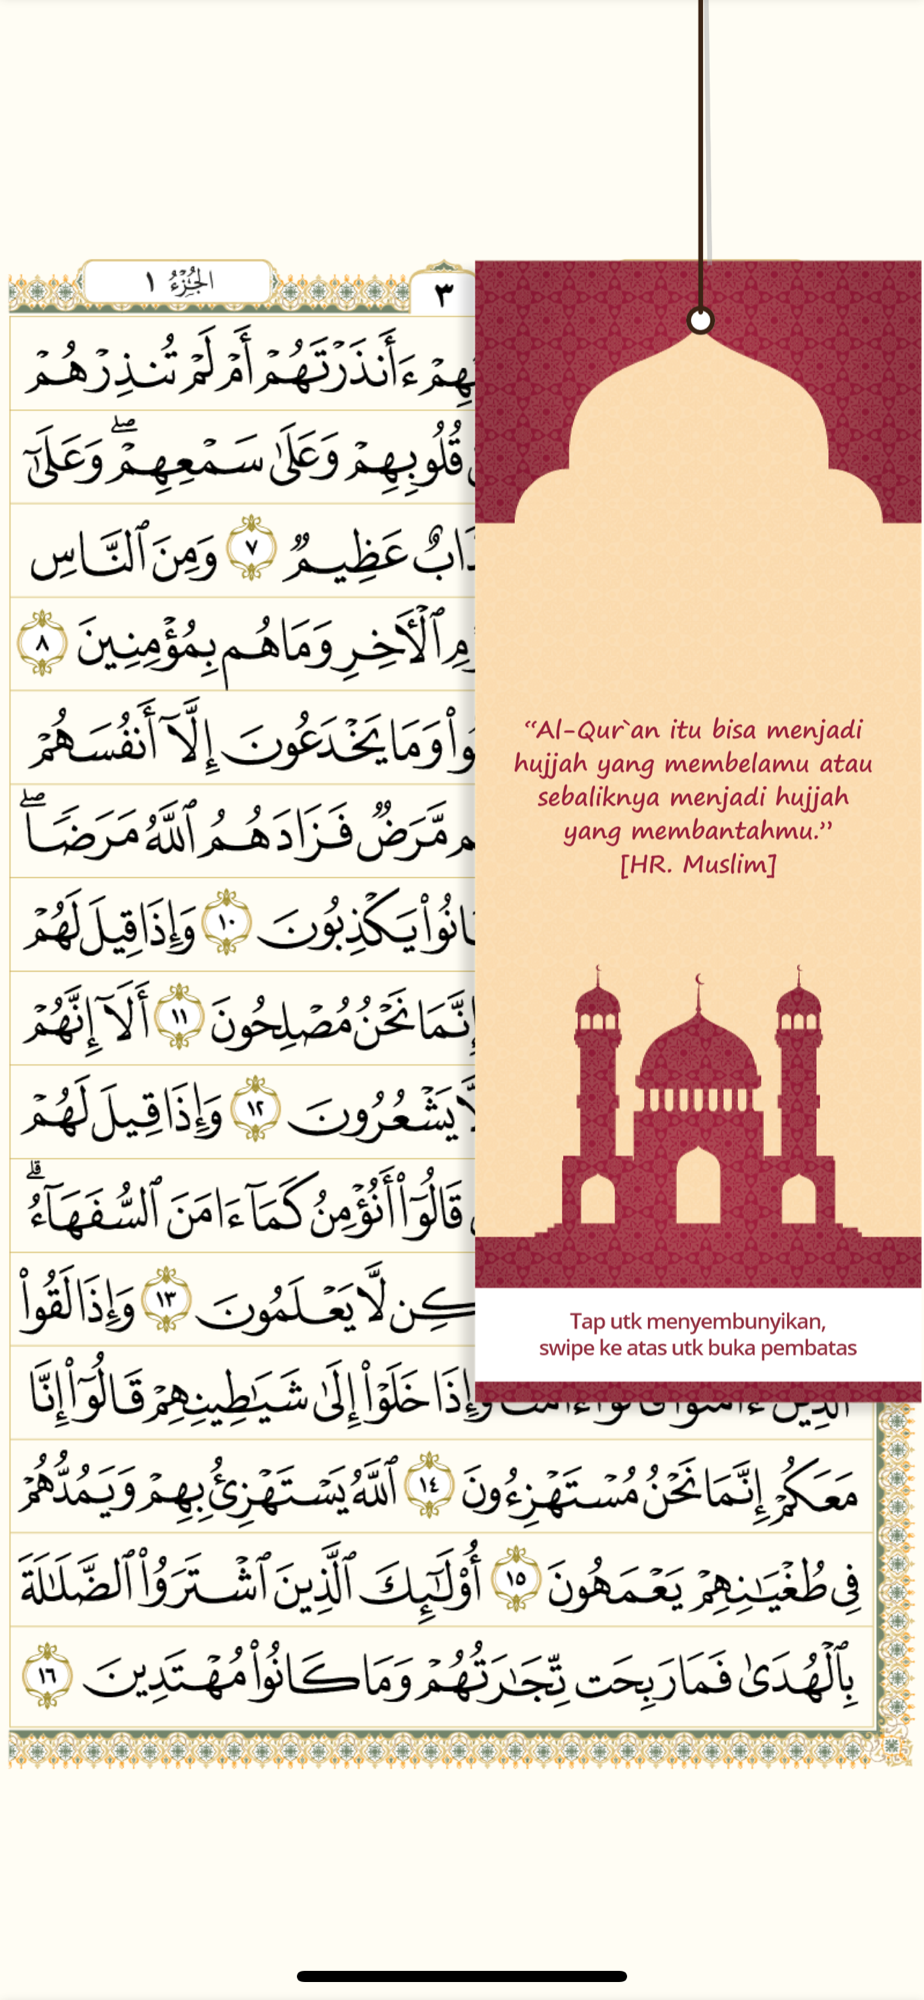 الجُزْءُ ١
٣
ءَأَنذَرْتَهُمْ أَمْ لَمْ تُنذِرْهُمْ
قُلُوبِهِمْ وَعَلَىٰ سَمْعِهِمْ ۖ وَعَلَىٰٓ
عَظِيمٌ ٧ وَمِنَ ٱلنَّاسِ
ٱلْءَاخِرِ وَمَا هُم بِمُؤْمِنِينَ ٨
وَمَا يَخْدَعُونَ إِلَّآ أَنفُسَهُمْ
مَّرَضٌ فَزَادَهُمُ ٱللَّهُ مَرَضًا ۖ
يَكْذِبُونَ ١٠ وَإِذَا قِيلَ لَهُمْ
إِنَّمَا نَحْنُ مُصْلِحُونَ ١١ أَلَآ إِنَّهُمْ
لَّا يَشْعُرُونَ ١٢ وَإِذَا قِيلَ لَهُمْ
قَالُوٓا۟ أَنُؤْمِنُ كَمَآ ءَامَنَ ٱلسُّفَهَآءُ ۗ
لَّا يَعْلَمُونَ ١٣ وَإِذَا لَقُوا۟
وَإِذَا خَلَوْا۟ إِلَىٰ شَيَـٰطِينِهِمْ قَالُوٓا۟ إِنَّا
مَعَكُمْ إِنَّمَا نَحْنُ مُسْتَهْزِءُونَ ١٤ ٱللَّهُ يَسْتَهْزِئُ بِهِمْ وَيَمُدُّهُمْ
فِى طُغْيَـٰنِهِمْ يَعْمَهُونَ ١٥ أُو۟لَـٰٓئِكَ ٱلَّذِينَ ٱشْتَرَوُا۟ ٱلضَّلَـٰلَةَ
بِٱلْهُدَىٰ فَمَا رَبِحَت تِّجَـٰرَتُهُمْ وَمَا كَانُوا۟ مُهْتَدِينَ ١٦
“Al-Qur`an itu bisa menjadi
hujjah yang membelamu atau
sebaliknya menjadi hujjah
yang membantahmu.”
[HR. Muslim]
Tap utk menyembunyikan,
swipe ke atas utk buka pembatas